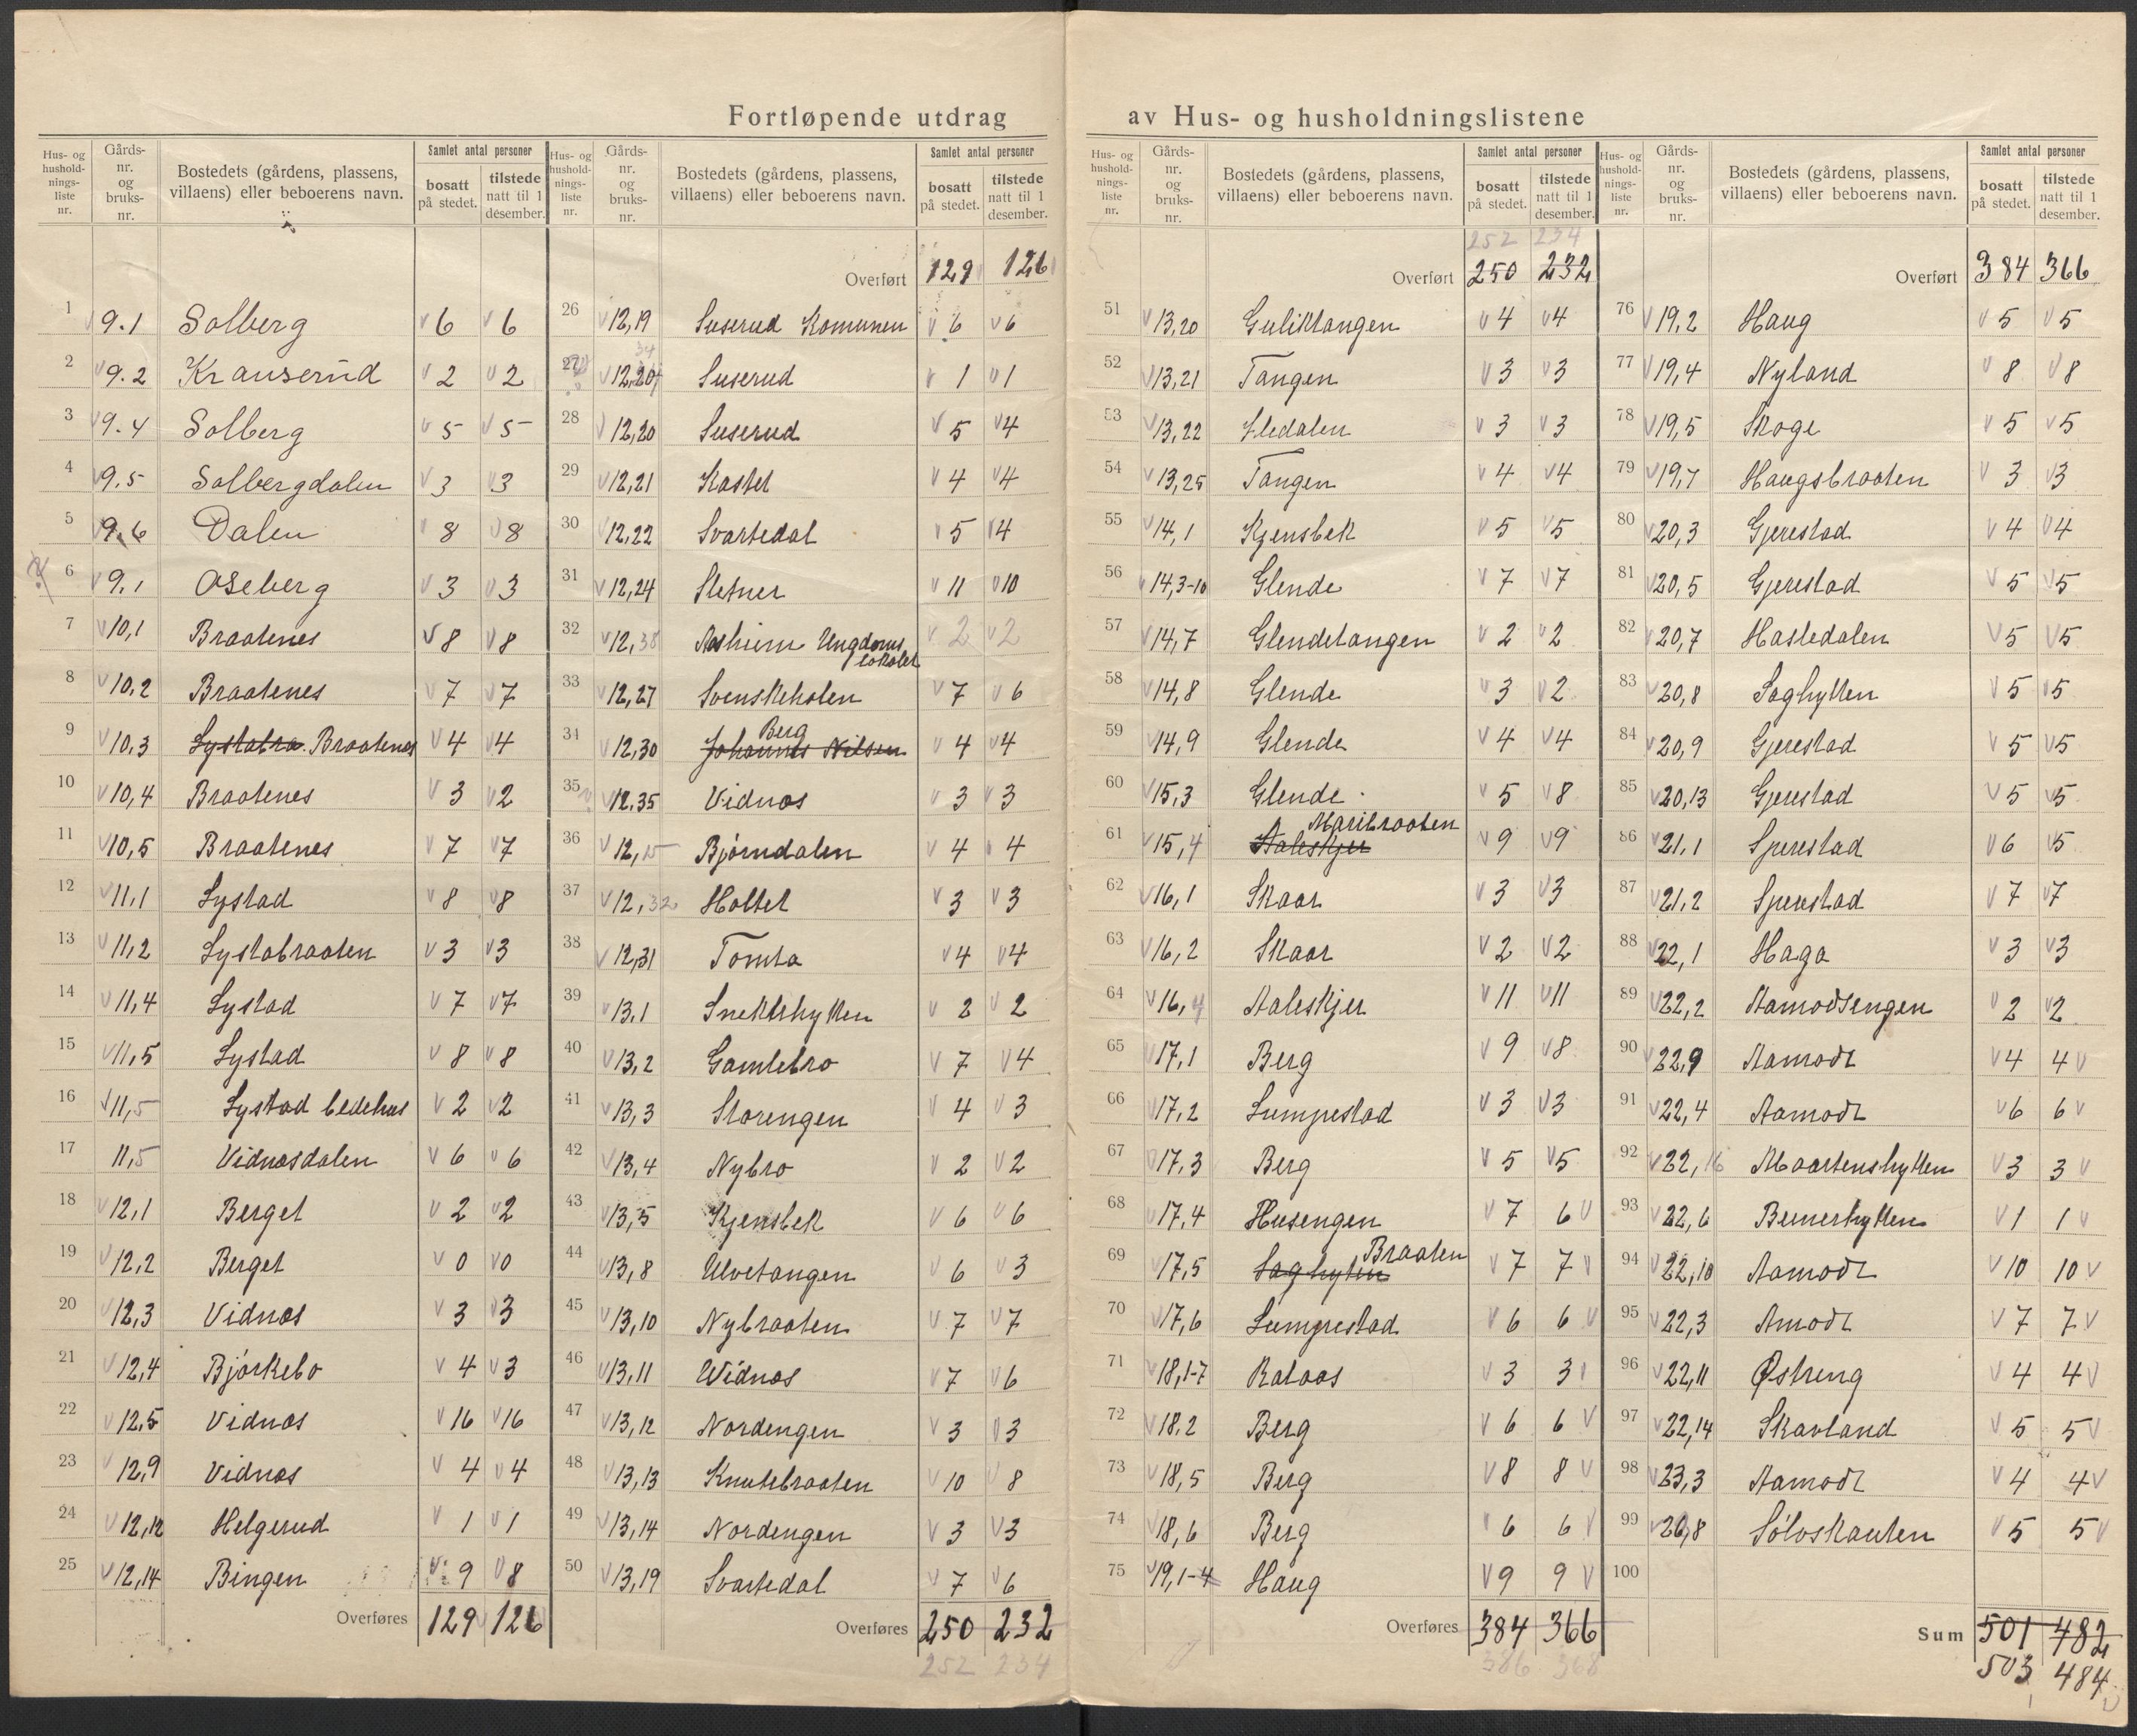 Fortløpende utdrag av Hus- og husholdningslistene
Hus- og hushold- nings- liste nr. Gårds- nr. og bruks- nr. Bostedets (gårdens, plassens, villaens) eller beboerens navn. Samlet antal personer bosatt på stedet. tilstede natt til 1 desember.
1 9.1 Solberg 6 6
2 9.2 Krauserud 2 2
3 9.4 Solberg 5 5
4 9.5 Solbergdalen 3 3
5 9.6 Dalen 8 8
6 9.1 Oseberg 3 3
7 10,1 Braatenes 8 8
8 10,2 Braatenes 7 7
9 10,3 Lystabra Braatenes 4 4
10 10,4 Braatenes 3 2
11 10,5 Braatenes 7 7
12 11,1 Lystad 8 8
13 11,2 Lystabraaten 3 3
14 11,4 Lystad 7 7
15 11,5 Lystad 8 8
16 11,5 Lystad bedehus 2 2
17 11,5 Vidnesdalen 6 6
18 12,1 Berget 2 2
19 12,2 Berget 0 0
20 12,3 Vidnes 3 3
21 12,4 Bjørkebo 4 3
22 12,5 Vidnes 16 16
23 12,9 Vidnes 4 4
24 12,12 Helgerud 1 1
25 12,14 Bingen 9 8
Overføres 129 126
Hus- og hushold- nings- liste nr. Gårds- nr. og bruks- nr. Bostedets (gårdens, plassens, villaens) eller beboerens navn. Samlet antal personer bosatt på stedet. tilstede natt til 1 desember.
Overført 129 126
26 12,19 Suserud Komunen 6 6
34
27 12,20 Suserud 1 1
28 12,20 Suserud 5 4
29 12,21 Kastet 4 4
30 12,22 Svartedal 5 4
31 12,24 Sletner 11 10
32 12,38 Aasheim Ungdoms 2 2
lokalet
33 12,27 Svenskeholen 7 6
Berg
34 12,30 Johannes Nilsen 4 4
35 12.35 Vidnes 3 3
36 12,15 Bjørndalen 4 4
37 12,32 Holtet 3 3
38 12,31 Tomta 4 4
39 13,1 Snekkerhytten 2 2
40 13,2 Gamlebro 7 4
41 13,3 Storengen 4 3
42 13,4 Nybro 2 2
43 13,5 Kjensbek 6 6
44 13,8 Ulvetangen 6 3
45 13,10 Nybraaten 7 7
46 13,11 Widnes 7 6
47 13,12 Nordengen 3 3
48 13,13 Knutebraaten 10 8
49 13,14 Nordengen 3 3
50 13,19 Svartedal 7 6
Overføres 250 232
252 234
Hus- og hushold- nings- liste nr. Gårds- nr. og bruks- nr. Bostedets (gårdens, plassens, villaens) eller beboerens navn. Samlet antal personer bosatt på stedet. tilstede natt til 1 desember.
252 234
Overført 250 232
51 13,20 Guliktangen 4 4
52 13,21 Tangen 3 3
53 13,22 Sledalen 3 3
54 13,25 Tangen 4 4
55 14,1 Kjensbek 5 5
56 14,3-10 Glende 7 7
57 14,7 Glendetangen 2 2
58 14,8 Glende 3 2
59 14,9 Glende 4 4
60 15,3 Glende 5 8
Maribraaten
61 15,4 Aaleskjer 9 9
62 16,1 Skaar 3 3
63 16,2 Skaar 2 2
64 16,4 Aaleskjer 11 11
65 17,1 Berg 9 8
66 17,2 Lumpestad 3 3
67 17,3 Berg 5 5
68 17,4 Husengen 7 6
Braaten
69 17,5 Saghyten 7 7
70 17,6 Lumpestad 6 6
71 18,1-7 Rataas 3 3
72 18.2 Berg 6 6
73 18,5 Berg 8 8
74 18,6 Berg 6 6
75 19,1-4 Haug 9 9
Overføres 384 366
386 368
Hus- og hushold- nings- liste nr. Gårds- nr. og bruks- nr. Bostedets (gårdens, plassens, villaens) eller beboerens navn. Samlet antal personer bosatt på stedet. tilstede natt til 1 desember.
Overført 384 366
76 19,2 Haug 5 5
77 19,4 Nyland 8 8
78 19,5 Skoge 5 5
79 19,7 Haugsbraaten 3 3
80 20,3 Gjerestad 4 4
81 20,5 Gjerestad 5 5
82 20,7 Hasledalen 5 5
83 20,8 Saghytten 5 5
84 20,9 Gjerestad 5 5
85 20,13 Gjerestad 5 5
86 21,1 Sperestad 6 5
87 21,2 Sperestad 7 7
88 22,1 Haga 3 3
89 22,2 Aamodsengen 2 2
90 22,9 Aamodt 4 4
91 22,4 Aamodt 6 6
92 22,16 Maartenshytten 3 3
93 22,6 Bunerhytten 1 1
94 22,10 Aamodt 10 10
95 22,3 Amodt 7 7
96 22,11 Østreng 4 4
97 22,14 Skavland 5 5
98 23,3 Aamodt 4 4
99 26,8 Sølvskauten 5 5
100
Sum 501 482
503 484